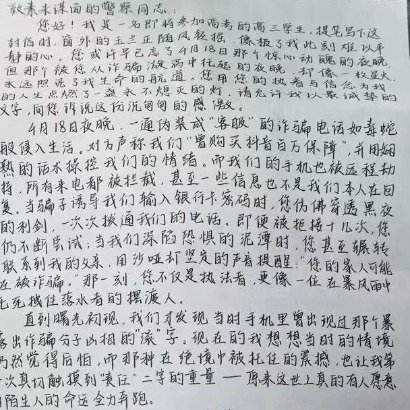 致素未谋面的警察同志：
您好！我是一名即将参加高考的高三学生，提笔写下这
封信时，窗外的玉兰正随风轻摇，像极了我此刻难以平
静的心。您或许早已忘了4月18日那个惊心动魄的夜晚，
但那个被您从诈骗漩涡中托起的夜晚，却像一枚星火，
永远照亮了我生命的航道。您用您的执着与信念为我
的人生点燃了一盏永不熄灭的灯，请允许我以最诚挚的
文字，向您诉说这份沉甸甸的感激。
4月18日夜晚，一通伪装成“客服”的诈骗电话如毒蛇
般侵入生活。对方声称我们“曾购买抖音百万保障”，并用娴
熟的话术操控我们的情绪。而我们的手机也被远程劫
持，所有来电都被拦截，甚至一些信息也不是我们本人在回
复。当骗子诱导我们输入银行卡密码时，您仿佛穿透黑夜
的利剑，一次次拨通我们的电话。即便被拒接十几次，您
仍不断尝试；当我们深陷恐惧的泥潭时，您甚至辗转
联系到我的父亲，用沙哑却坚定的声音提醒：“您的家人可能
在被诈骗”那一刻，您不仅是执法者，更像一位在暴风雨中
死死拽住落水者的摆渡人。
直到曙光初现，我们才发现当时手机里曾出现过那个暴
露出诈骗分子凶相的“滚”字，现在的我想想当时的情境
仍然觉得后怕，而那种在绝境中被托住的震撼，也让我第
一次真切触摸到“责任”二字的重量——原来这世上真的有人愿意
为陌生人的命运全力奔跑。